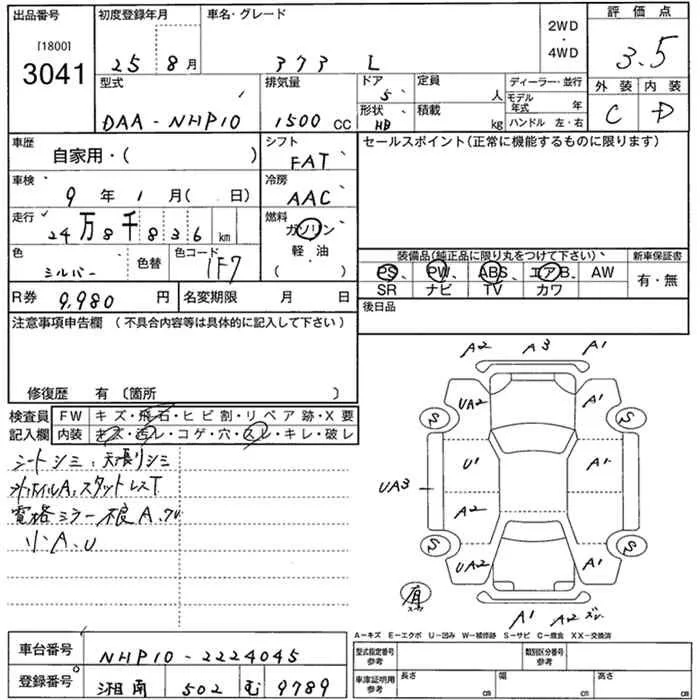 出品番号 初度登録年月 車名・グレード 2WD ・ 4WD 評価点
[1800]
3041 25 8月 373 L 3.5
型式 排気量 ドア 5 定員 人 ディーラー・並行 外装 内装
モデル年式 年
DAA-NHP10 1500 CC 形状 HB 積載 kg ハンドル 左・右 C D
車歴 自家用・( ) シフト FAT セールスポイント(正常に機能するものに限ります)
車検 9年 1月( 日) 冷房 AAC
走行 24万8千836 km 燃料 ガソリン
軽・油
( )
色 シルバー 色替 色コード 1F7 装備品(純正品に限り丸をつけて下さい) 新車保証書
PS、 PW、 ABS、 エアB、 AW 有・無
SR ナビ TV カワ
R券 9,980 円 名変期限 月 日 後日品
注意事項申告欄 (不具合内容等は具体的に記入して下さい)
修復歴 有 〔箇所 〕
検査員 FW キズ・飛石・ヒビ割・リペア跡・X要
記入欄 内装 キズ・汚レ・コゲ・穴・スレ・キレ・破レ
シートシミ、天張りシミ
A、スタットレスT
電格ミラー不良A、
小A、U
A2 A3 A1
UA2 A1
S S
U1 A1
UA3
A2
S S
UA2 A1
A1 A2
A-キズ E-エクボ U-凹み W-補修跡 S-サビ C-腐食 XX-交換済
車台番号 NHP10-2224045 型式指定番号 参考 類別区分番号 参考
登録番号 湘南 502 む 9789 車庫証明用 参考 長さ cm 幅 cm 高さ cm